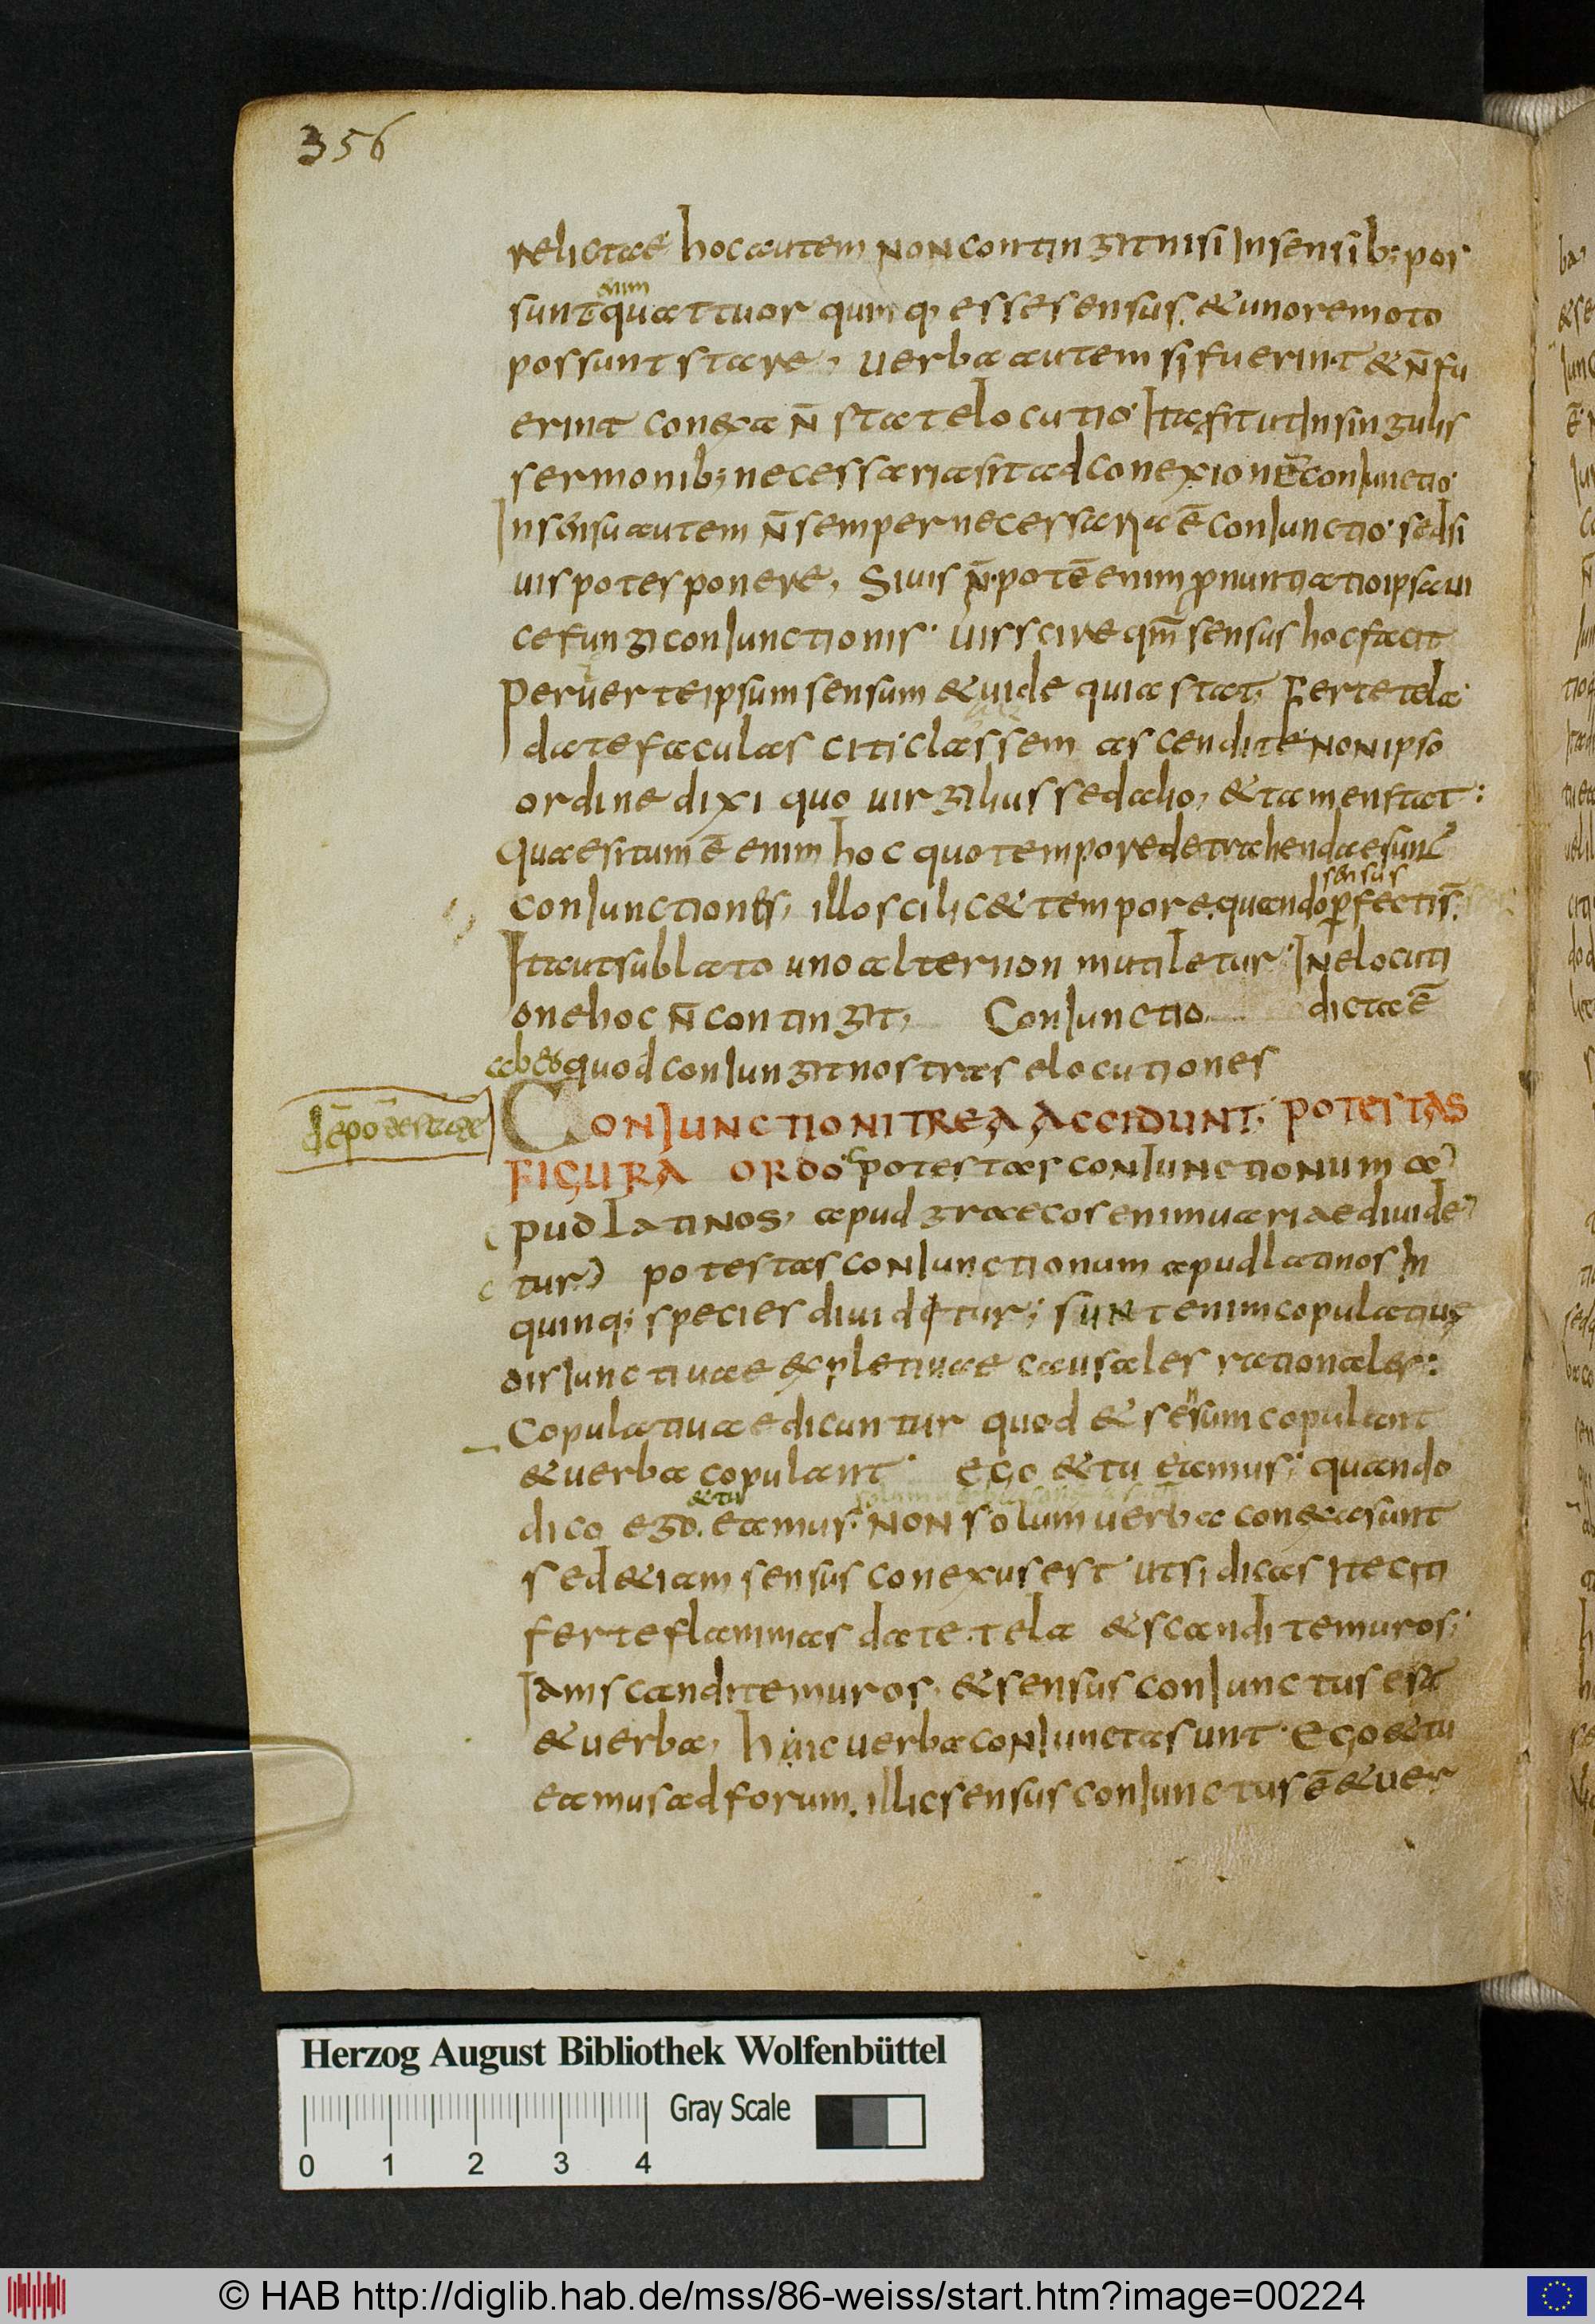 356
relictae hoc autem non contingit nisi In sensib; pos
enim
sunt quattuor quinq, esse sensus. & uno remoto
possunt stare, uerba autem si fuerint & n̄ fu
erint conexa n̄ stat elocutio. Ita fit ut In singulis
sermonib; necessaria sit ad conexionē conIunctio.
In sensu autem n̄ semper necessaria ē conIunctio. sed si
uis potes ponere, Si uis n̄. potē enim ꝓnuntiatio ipsa ui
ce fungi conIunctionis. uis scire qm̄ sensus hoc facit
peruerte ipsum sensum & uide quia stat, Ferte tela
date faculas citi classem ascendite. non ipso
ordine dixi quo uirgilius sed alio, & tamen stat:
Quaesitum ē enim hoc quo tempore detrahendae sunt
sensus
conIunctiones, illo scilic& tempore. quando ꝑfectis.
Ita ut sublato uno alter non mutiletur. In elocuti
one hoc n̄ contingit, ConIunctio dicta ē
ab eo quod conIungit nostras elocutiones
ConIunctioni trea accidunt. potestas
de potestate
figura ordo. potestas conIunctionum a
pud latinos, apud graecos enim uariae diuide
tur potestas conIunctionum apud latinos In
quinq; species diuiditur; sunt enim copulatiue
disIunctiuae expletiuae causales rationales:
Copulatiuae dicuntur quod & sensum copulant
& uerba copulant. ego & tu eamus; quando
& tu
dico ego. eamus. non solum uerba conexa sunt
sed &iam sensus conexus est ut si dicas ite citi
ferte flammas date tela & scandite muros;
Iam scandite muros. & sensus conIunctus est
& uerba, hinc uerba conIuncta sunt. ego & tu
eamus ad forum. illic sensus conIunctus ē & uer
Herzog August Bibliothek Wolfenbüttel
Gray Scale
0 1 2 3 4
© HAB http://diglib.hab.de/mss/86-weiss/start.htm?image=00224